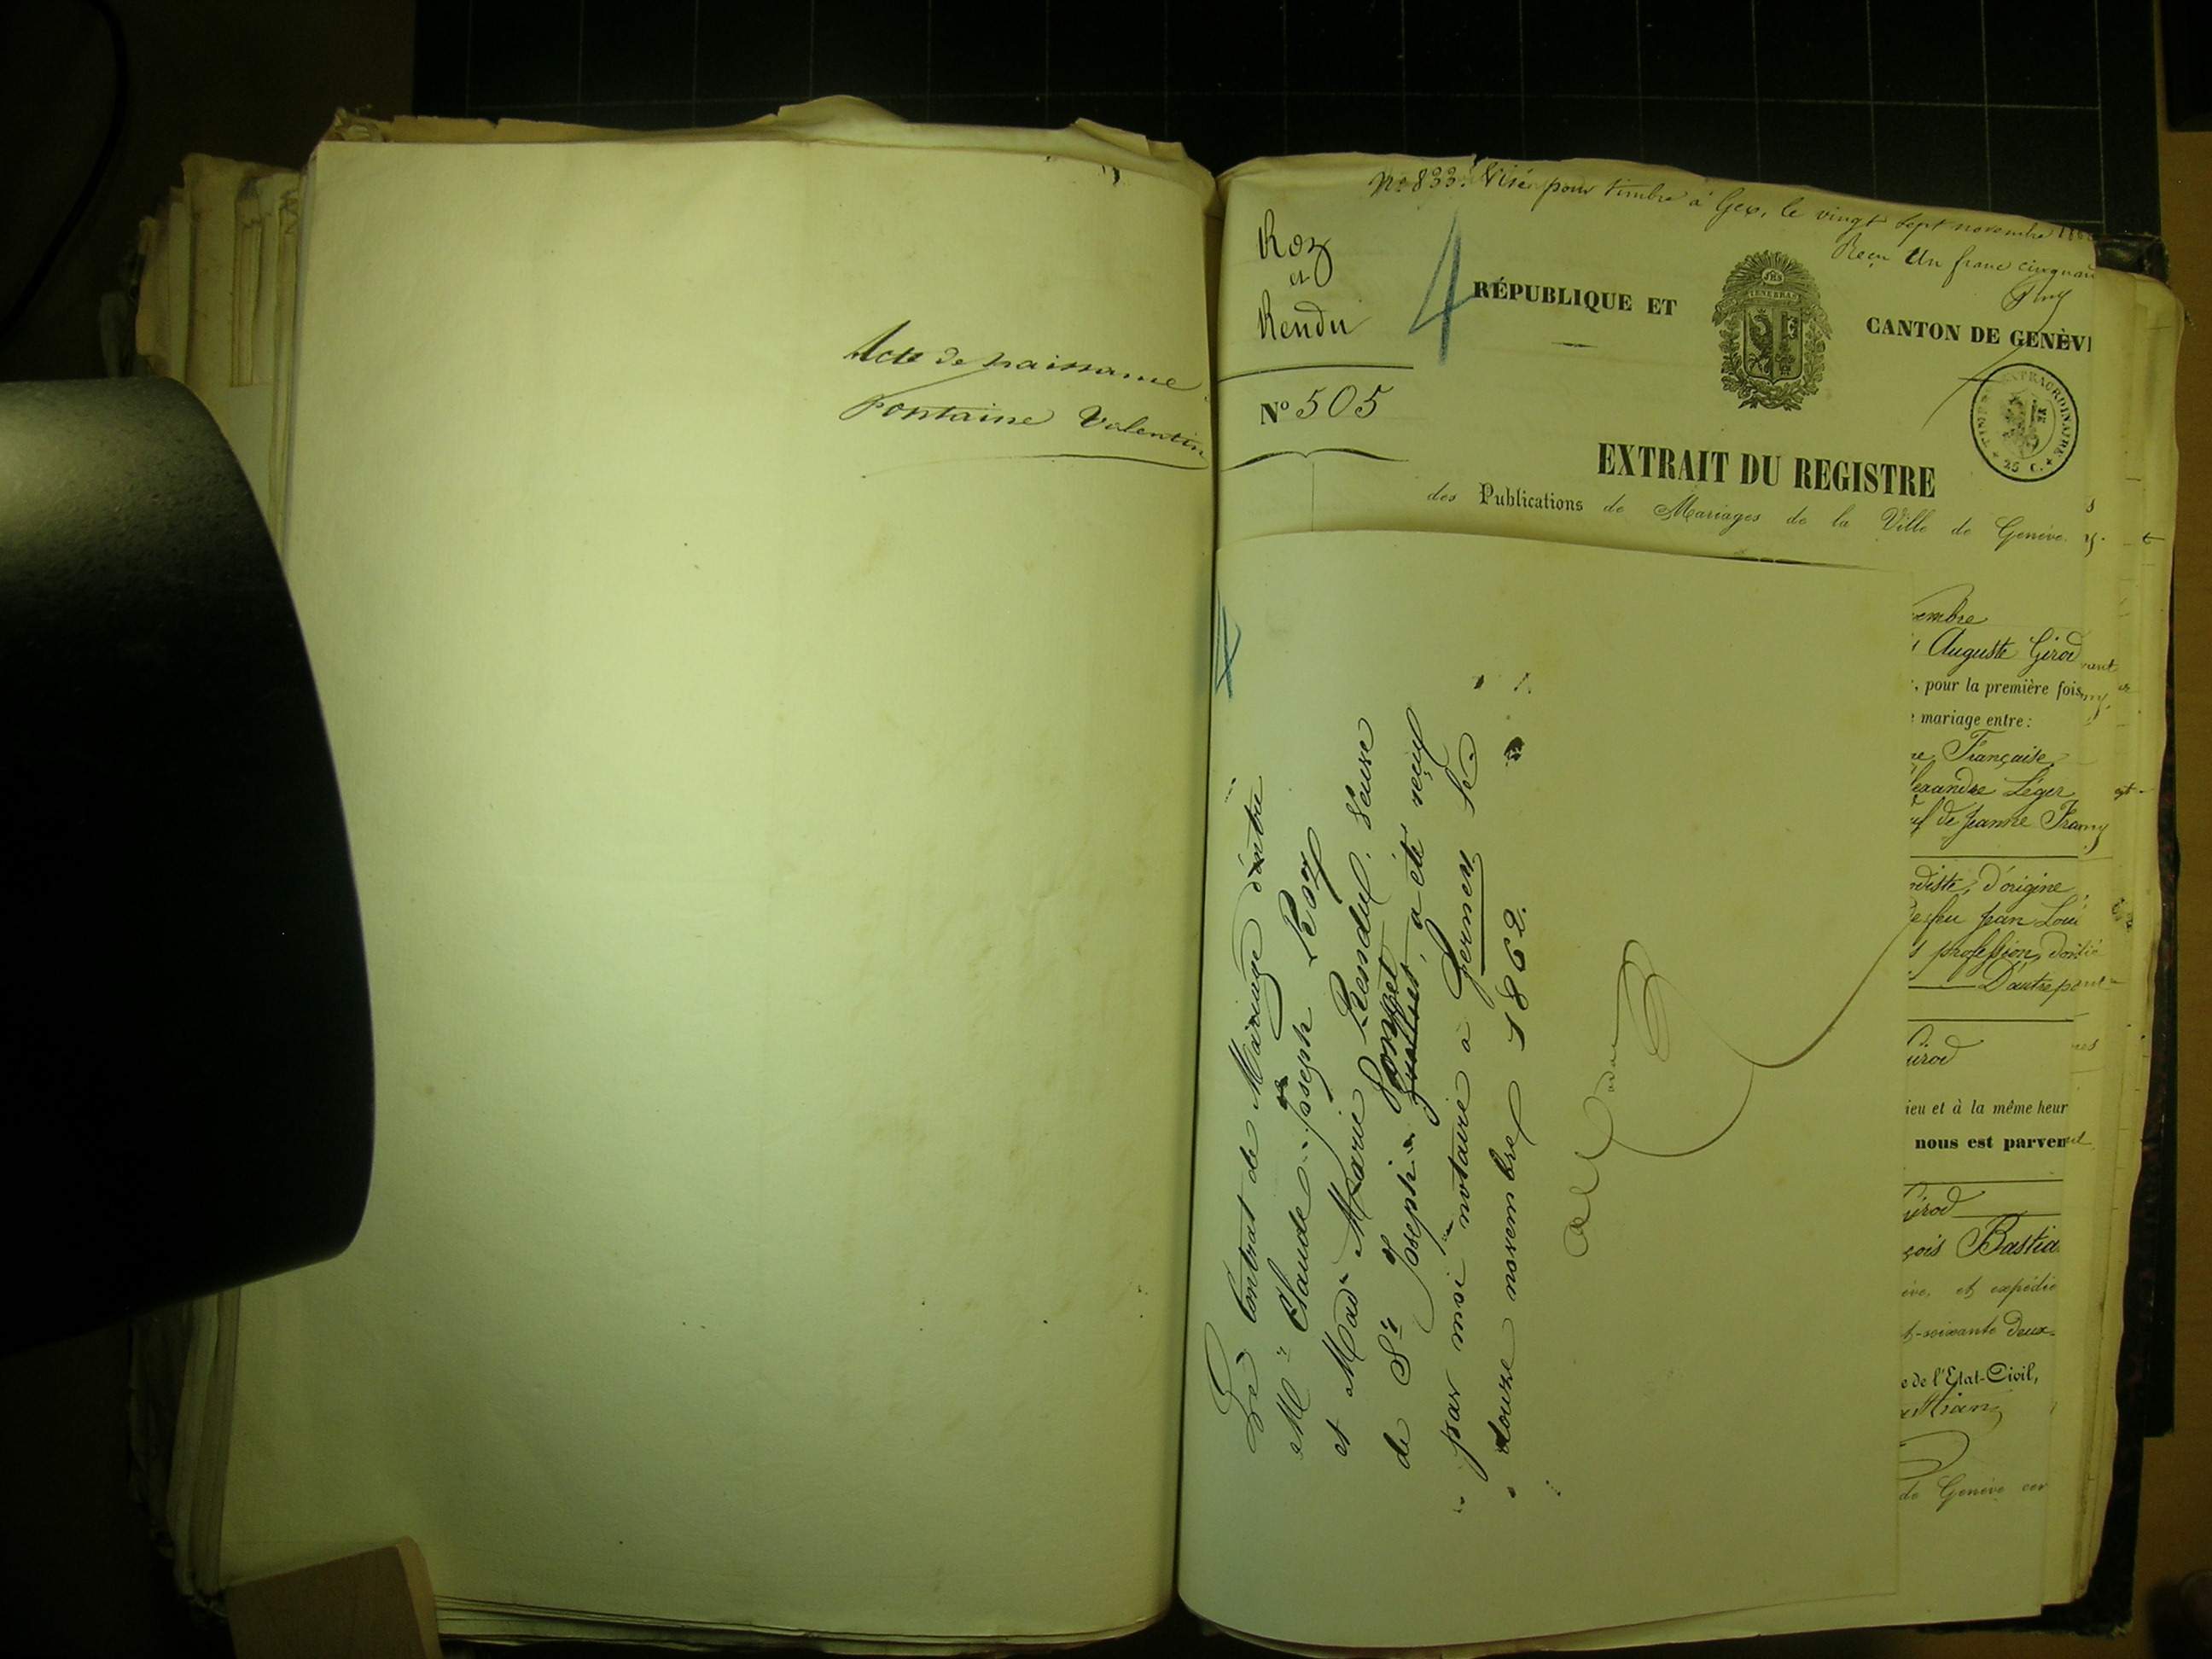 Acte de naissance
Fontaine Valentin
No 833. Visé pour timbre à Gex, le vingt sept novembre
Reçu Un franc cinquan
Roz
et
Rendu
4
RÉPUBLIQUE ET
CANTON DE GENÈV
No 505
TIMBRE EXTRAORDINAIRE
25 C.
EXTRAIT DU REGISTRE
des Publications de Mariages de la Ville de Genève.
4
Le Contrat de Mariage d'entre
Mr Claude-Joseph Roz
et Made Marie Rendu, Veuve
de Sr Joseph
a été reçu
par moi notaire à Ferney le
douze novembre 1862.
embre
Auguste Girod
, pour la première fois,
mariage entre:
Française,
lexandre Léger
uf de Jeanne Franç
diste, d'origine
de feu Jean Loui
profession, domi
D'autre part
Girod
ieu et à la même heur
nous est parven
Girod
çois Bastia
ève, et expédié
t-soixante deux
e de l'Etat-Civil,
de Genève cer